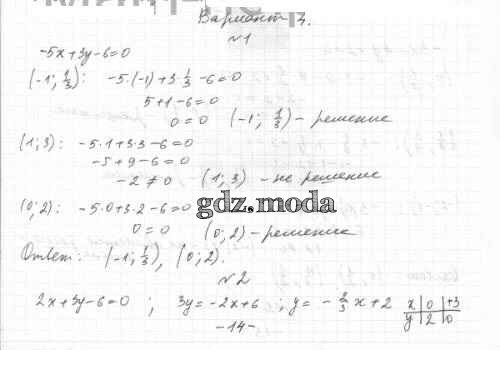 Вариант 3.
№1
-5x+3y-6=0
(-1; 1/3): -5·(-1)+3·1/3-6=0
5+1-6=0
0=0 (-1; 1/3) - решение
(1; 3): -5·1+3·3-6=0
-5+9-6=0
-2≠0 (1; 3) - не решение
(0; 2): -5·0+3·2-6=0
gdz.moda
0=0 (0; 2) - решение
Ответ: (-1; 1/3), (0; 2).
№2
2x+3y-6=0 ; 3y=-2x+6 ; y= -2/3 x+2 x 0 +3
y 2 0
-14-